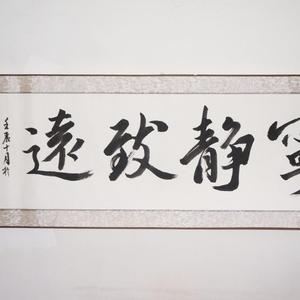 寧靜致遠
壬辰十月於